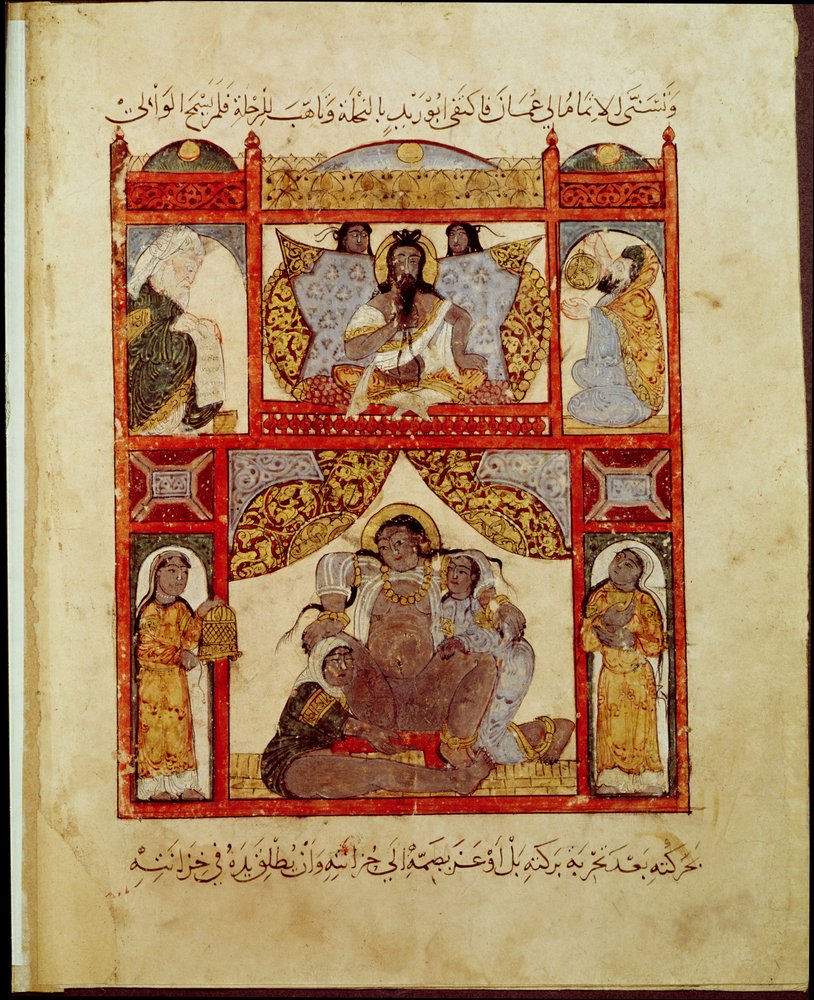 وَتَسَنَّى الاِتمامُ الي عُمانَ فَاكتفَى ابُو زيدٍ بِالنحْلَةِ وَتاهَّبَ لِلرِحْلةِ فَلَمْ يَسْمَحِ الوَالِيْ
بِحَرَكَتِهِ بَعْدَ تَجْرِبَةِ بَرَكتِهِ بَلْ اَوْعَزَ بِضَمِّهِ اِلَي حُزَانَتِهِ وَاَنْ يُطْلَقَ يَدَهُ فِي خِزَانَتِهِ